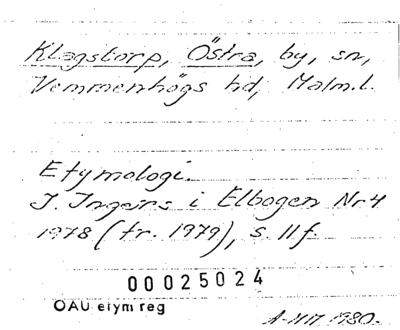 Klagstorp, Östra, by, sn,
Vemmenhögs hd, Malm.l.
Etymologi.
I. Ingers i Elbogen Nr 4
1978 (tr. 1979), s. 11 f.
00025024
OAU etym reg
1980.